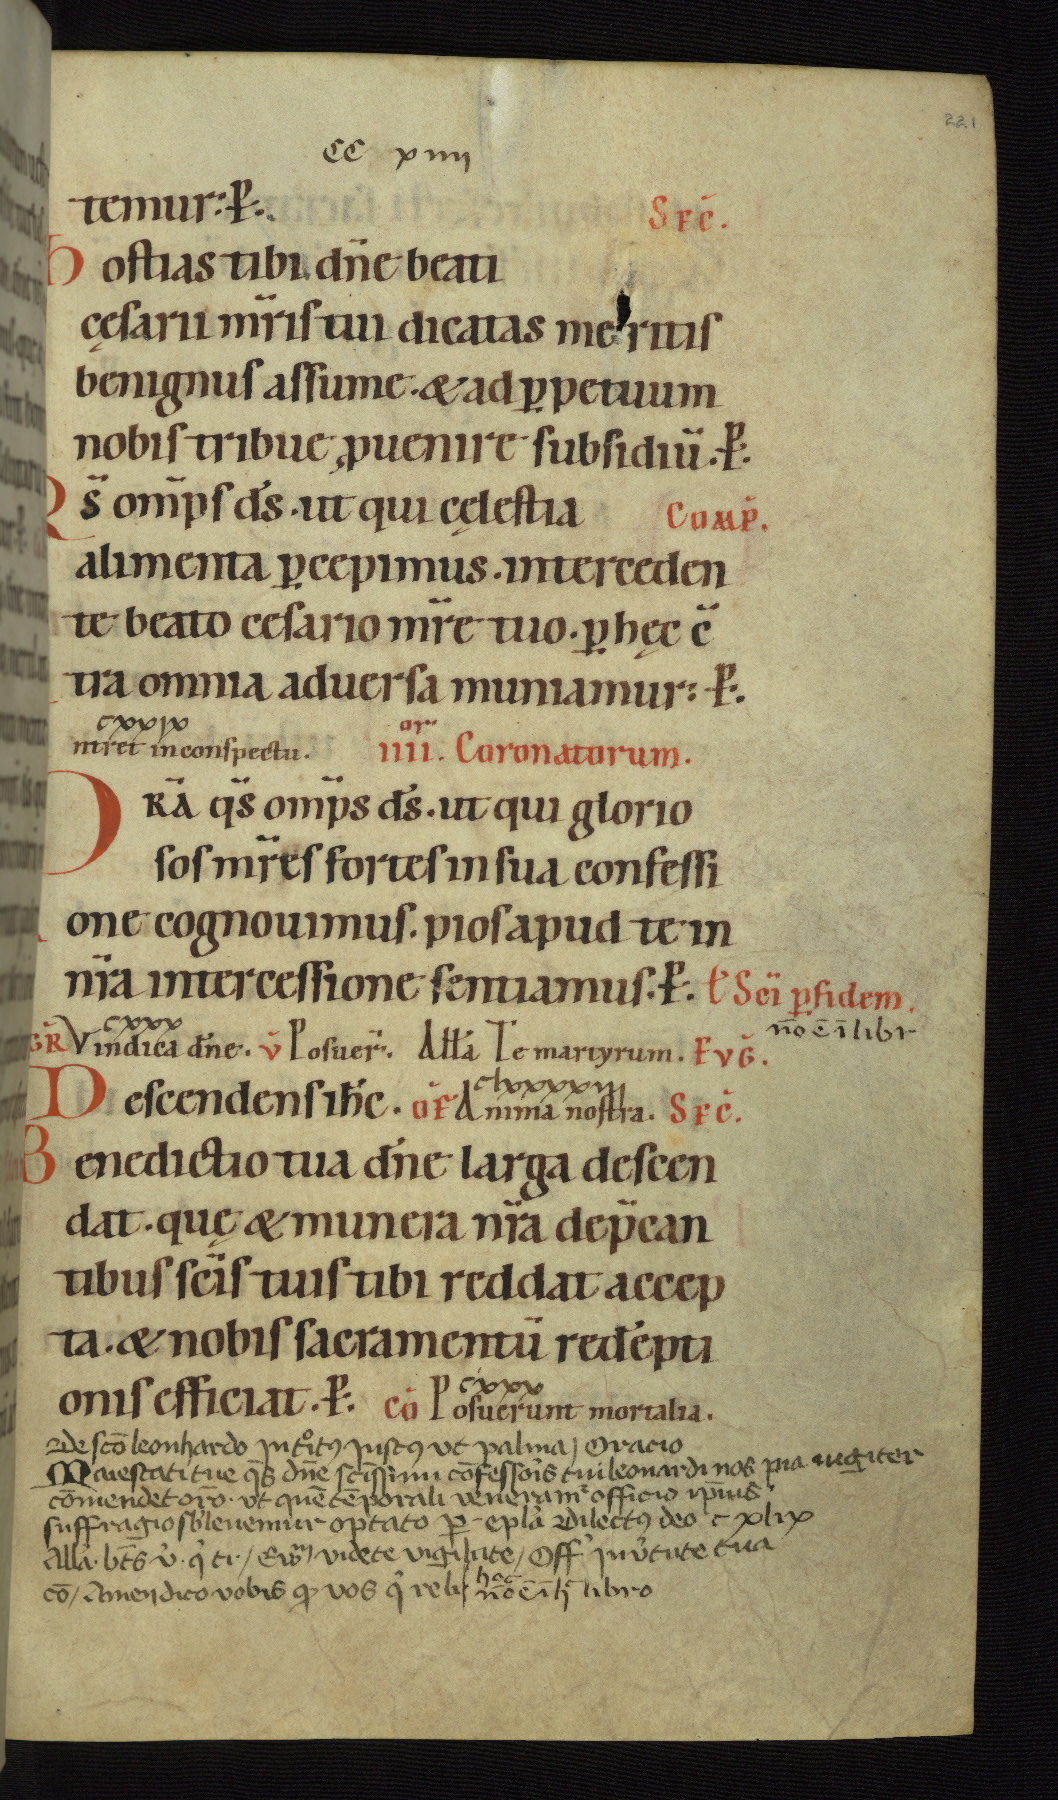 221
CC xiiii
temur: P̄. Sec̄.
Hostias tibi dn̄e beati
cęsarii mr̄is tui dicatas meritis
benignus assume. & ad ꝑpetuum
nobis tribue ꝓuenire subsidiū. P̄.
Qs̄ omīps ds̄. ut qui cęlestia Comp̄.
alimenta ꝑcepimus. interceden
te beato cesario mr̄e tuo. ꝑ hęc c̄
tra omnia aduersa muniamur: P̄.
cxxix
ntret in conspectu. iiii. orum Coronatorum.
Dr̄a qs̄ omīps ds̄. ut qui glorio
sos mr̄es fortes in sua confessi
one cognouimus. pios apud te in
nr̄a intercessione sentiamus. P̄. ł Sc̄i ꝑ fidem.
nō ē ī libr
cxxx
GR̄ Vindica dn̄e. v̄ Posuer̄. Allā Te martyrum. Evḡ.
Descendens ih̄c. of̄ Anima nostra. Sec̄.
clxxxxiii
Benedictio tua dn̄e larga descen
dat. quę & munera nr̄a dep̄can
tibus sc̄is tuis tibi reddat accep
ta. & nobis sacramentū redēpti
onis efficiat. P̄. cō Posuerunt mortalia.
cxxx
de scō leonhardo Introitꝰ Iustꝰ vt palma Oracio
Maiestati tue qs̄ dn̄e sc̄issimi cōfessor̄is tui leonardi nos pia iugiter
cōmendet orō. vt quē tēporali veneramᷣ officio ip̄ius
suffragio sb̓leuemur optato ꝑ epl̄a dilectꝰ deo c xlix
Allā. bt̄s v̓. q̓ ti / Ew̄ / videte vigilate / Off̓ In v̓tute tua
cō / Amen dico vobis ꝙ vos q̓ reli hoc nō ē ī libro